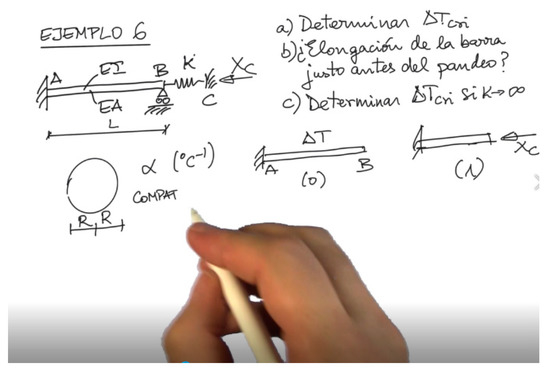 EJEMPLO 6
a) Determinar ΔTcri
b) ¿Elongación de la barra
justo antes del pandeo?
c) Determinar ΔTcri si K→∞
A EI B K Xc
EA C
L
α (°C⁻¹)
R R
COMPAT
ΔT
A B
(0)
Xc
(1)